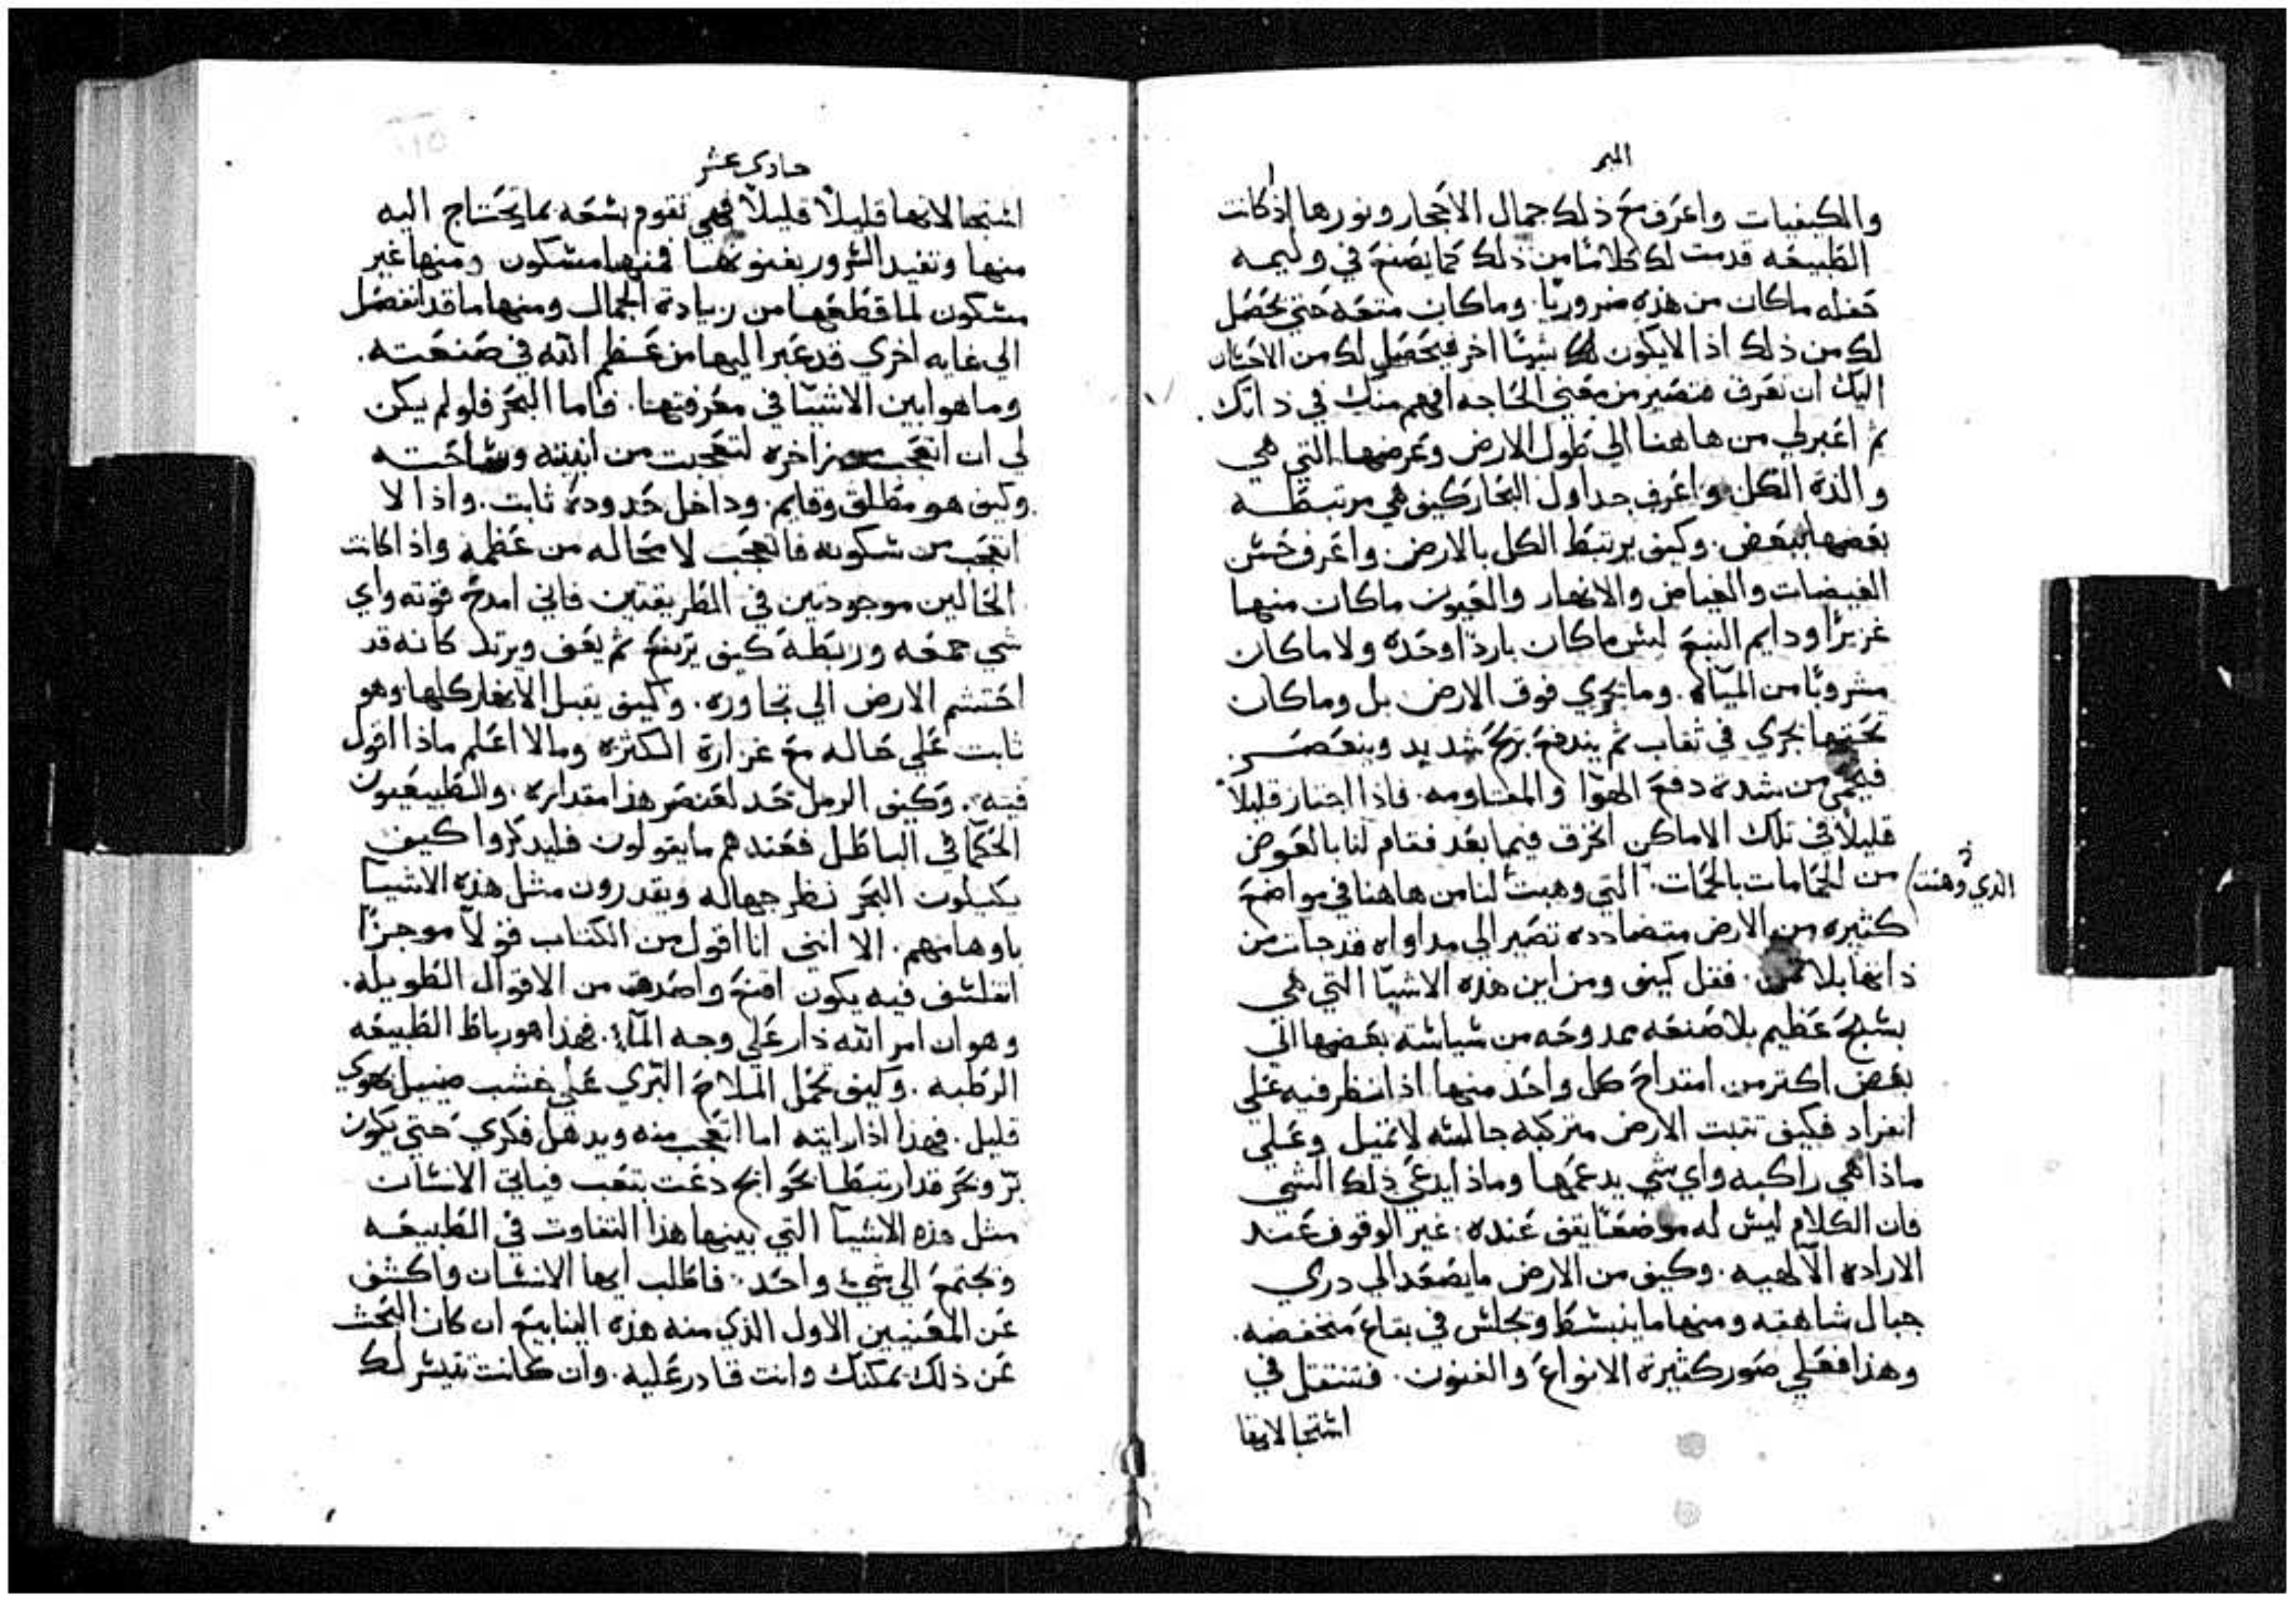 المير
والكيفيات واعرف مع ذلك جمال الاحجار ونورها اذ كانت
الطبيعه قدمت لك كلاما من ذلك كما يصنع في وليمه
حفله ماكان من هذه ضروريا. وماكان متعه حتي يحصل
لك من ذلك اذا لايكون لك شيئا اخر فيحصل لك من
اليك ان تعرف فتصير من معني الحاجه افهم منك في ذاتك.
ثم اعبر لي من هاهنا الي طول الارض وعرضها التي هي
والدة الكل واعرف جداول البحار كيف هي مرتبطه
بعضها ببعض. وكيف يرتبط الكل بالارض. واعرف حسن
الغيضات والغياض والانهار والعيون ماكان منها
غزيرا ودايم النبع ليس ماكان باردا وحده ولا ماكان
مشروبا من المياه. وما يجري فوق الارض بل وماكان
تحتها يجري في ثقاب ثم يندفع بريح شديد وينعصر.
فيحمي من شدة دفع الهوا والمقاومه. فاذا اجتاز قليلا
قليلا في تلك الاماكن انخرق فيما بعد فقام لنا بالعوض
من الحمامات بالحمات. التي وهبت لنا من هاهنا في مواضع
الذي وهبت
كثيره من الارض متضادده تصير الي مداواه قد جات من
ذاتها بلا ثمن. فقل كيف ومن اين هذه الاشيا التي هي
بشبح عظيم بلا صنعه ممدوحه من شياشة بعضها الي
بعض اكتر من امتداح كل واحد منها اذا نظر فيه علي
انفراد فكيف تتبت الارض متركبه جالسه لاتميل وعلي
ماذا هي راكبه واي شي يدعمها وماذا يدعي ذلك الشي
فان الكلام ليس له موضعا يقف عنده. غير الوقوف عند
الاراده الالهيه. وكيف من الارض ما يصعد الي دري
جبال شاهقه ومنها ما ينبسط ويجلس في بقاع منخفضه.
وهذا فعلي صور كثيرة الانواع والفنون. فتنتقل في
استحالاتها
حادي عشر
استحالاتها قليلا قليلا فهي تقوم بسعه بما يحتاج اليه
منها وتفيد السرور بفنونها فمنها مسكون ومنها غير
مسكون لما قطعها من زيادة الجمال ومنها ما قد انفصل
الي غايه اخري قد عبر اليها من عظم الله في صنعته.
وما هو ابين الاشيا في معرفتها. فاما البحر فلو لم يكن
لي ان اتعجب من زاخره لتعجبت من انيته وساحته
وكيف هو مطلق وقايم. وداخل حدوده ثابت. واذا لا
اتعجب من سكونه فاتعجب لا محاله من عظمه واذا كانت
الحالين موجودتين في الطريقتين فاني امدح قوته واي
شي جمعه وربطه كيف يرتفع ثم يقف ويرتد كانه قد
احتشم الارض الي تجاوره. وكيف يقبل الانهار كلها وهو
ثابت علي حاله مع غزارة الكثره وما لا اعلم ماذا اقول
فيه. وكيف الرمل حد لعنصر هذا مقداره. والطبيعيون
الحكما في الباطل فعندهم ما يقولون فليدكروا كيف
يكيلون البحر نظر جهاله ويقدرون مثل هذه الاشيا
باوهامهم. الا انني انا اقول من الكتاب قولا موجزا
اتفلسف فيه يكون اقنع واصدق من الاقوال الطويله.
وهو ان امر الله دار علي وجه الما. فهذا هو رباط الطبيعه
الرطبه. وكيف تحمل الملاح البري علي خشب ضييل بهوي
قليل. فهذا اذا رايته اما اتعجب منه ويدهل فكري حتي يكون
بر وبحر قد ارتبطا بحوايج دعت بتعب فياتي الانسان
مثل هذه الاشيا التي بينها هذا التفاوت في الطبيعه
وتجتمع الي شي واحد. فاطلب ايها الانسان واكشف
عن المعنيين الاول الذي منه هذه الينابيع ان كان البحث
عن ذلك يمكنك وانت قادر عليه. وان كانت تيسر لك